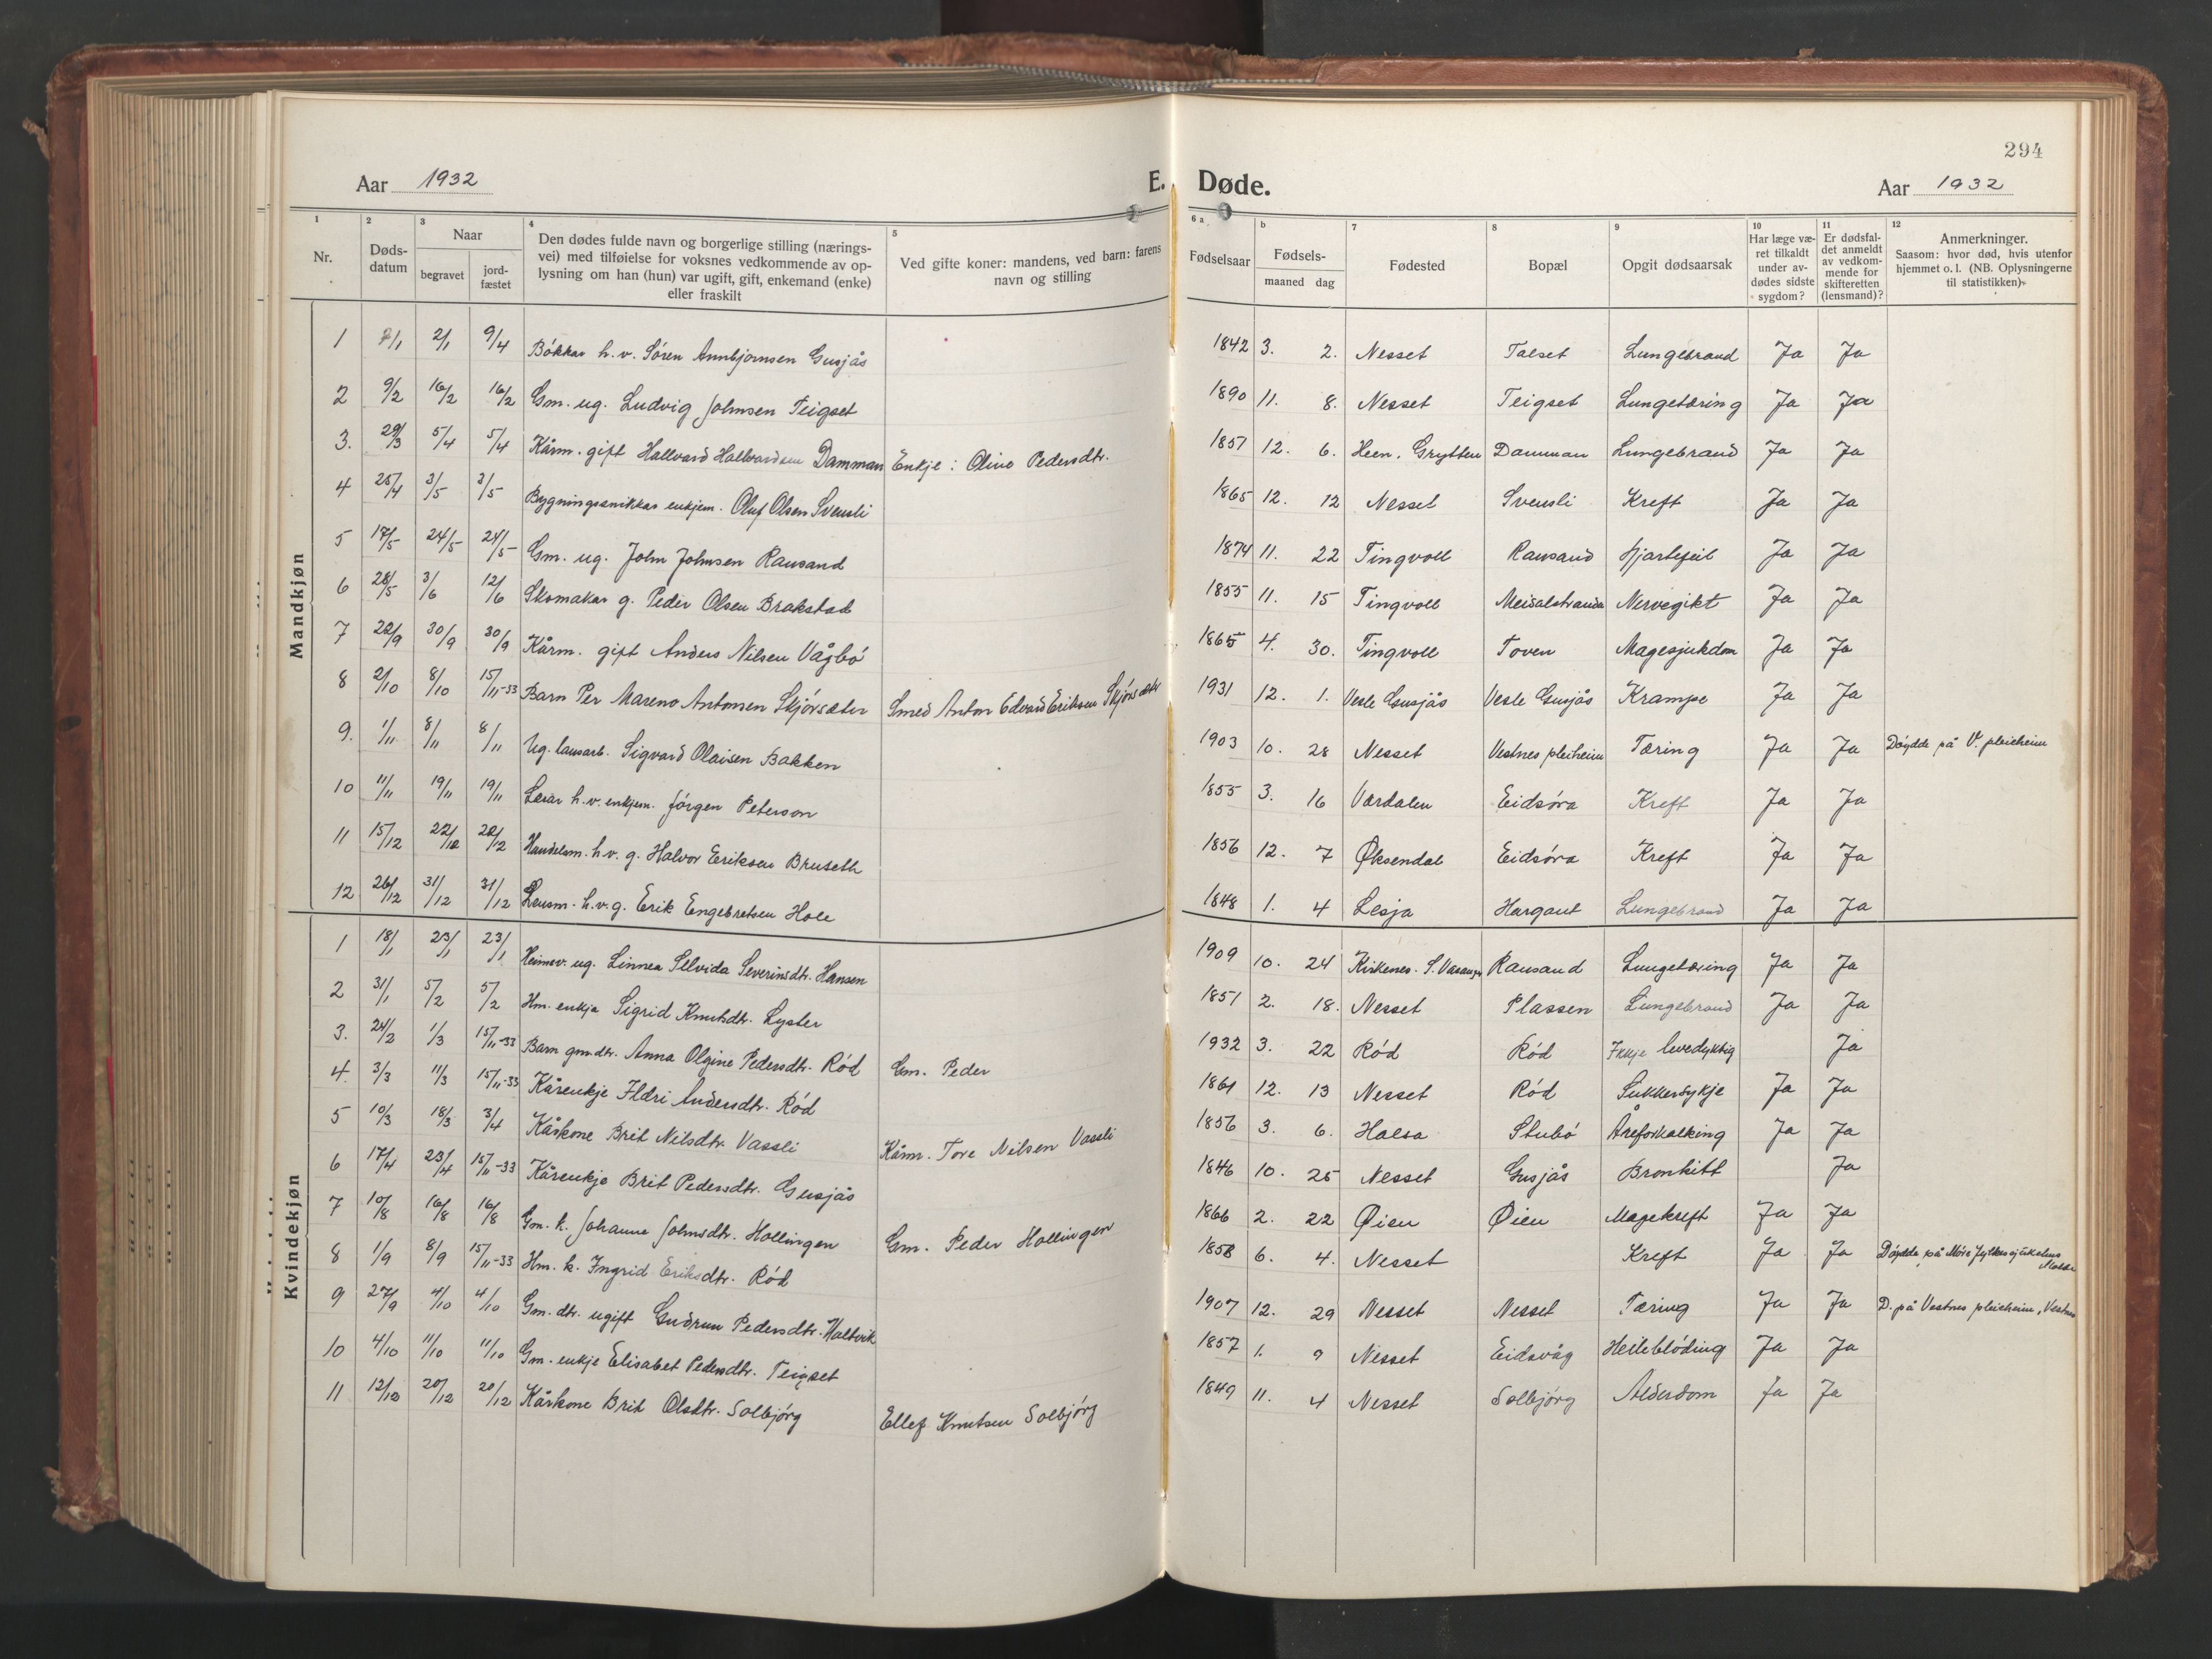 294
Aar 1932 E. Døde. Aar 1932
1 2 3 4 5 6 a b 7 8 9 10 11 12
Nr. Døds-datum Naar begravet jord-fæstet Den dødes fulde navn og borgerlige stilling (nærings-vei) med tilføielse for voksnes vedkommende av op-lysning om han (hun) var ugift, gift, enkemand (enke) eller fraskilt Ved gifte koner: mandens, ved barn: farens navn og stilling Fødselsaar Fødsels- maaned dag Fødested Bopæl Opgit dødsaarsak Har læge væ-ret tilkaldt under av-dødes sidste sygdom? Er dødsfal-det anmeldt av vedkom-mende for skifteretten (lensmand)? Anmerkninger. Saasom: hvor død, hvis utenfor hjemmet o. l. (NB. Oplysningerne til statistikken)
Mandkjøn
1 2/1 9/4 Bókkar h.v. Sóren Gusjås 1842 3. 2. Nesset Talset Lungebrand Ja Ja
2 9/2 16/2 16/2 Gm. ug. Ludvig Johnsen Teigset 1890 11. 8. Nesset Teigset Lungetæring Ja Ja
3. 29/3 5/4 5/4 Kårm. gift Hallvard Hallvardsen Damman Enkje: Oline Pedersdtr. 1851 12. 6. Heen, Grytten Damman Lungebrand Ja Ja
4 25/4 3/5 3/5 Bygningssnikkar enkjem. Oluf Olsen Svensli 1865 12. 12 Nesset Svensli Kreft Ja Ja
5 17/5 24/5 24/5 Gm. ug. John Johnsen Rausand 1874 11. 22 Tingvoll Rausand Hjartefeil Ja Ja
6 28/5 3/6 12/6 Skomakar g. Peder Olsen Brakstad 1855 11. 15 Tingvoll Meisalstranda Nervegikt Ja Ja
7 22/9 30/9 30/9 Kårm. gift Anders Nilsen Vågbó 1865 4. 30. Tingvoll Toven Magesjukdom Ja Ja
8 2/10 8/10 15/11-33 Barn Per Mareno Antonsen Skjórsæter Smed Anton Edvard Eriksen Skjórsæter 1931 12. 1. Vesle Gusjås Vesle Gusjås Krampe Ja Ja
9. 1/11 8/11 8/11 Ug. lausarb. Sigvard Olaisen Bakken 1903 10. 28 Nesset Vestnes pleieheim Tæring Ja Ja Dóydde på V. pleieheim
10 11/11 19/11 19/11 h.v. enkjem. Jórgen Peterson 1855 3. 16 Værdalen Eidsóra Kreft Ja Ja
11 15/12 22/12 22/12 Handelsm. h.v. g. Halvor Eriksen Bruseth 1856 12. 7 Øksendal Eidsóra Kreft Ja Ja
12 26/12 31/12 31/12 Lensm. h.v. g. Erik Engebretsen Hole 1848 1. 4 Lesja Hargaut Lungebrand Ja Ja
Kvindekjøn
1 18/1 23/1 23/1 Heimev. ug. Linnea Selvida Severinsdtr. Hansen 1909 10. 24 Kirkenes. S. Rausand Lungetæring Ja Ja
2 31/1 5/2 5/2 Hm. enkja Sigrid Knutsdtr. Lyster 1851 2. 18. Nesset Plassen Lungebrand Ja Ja
3. 24/2 1/3 15/11-33 Barn gmdtr. Anna Olgine Pedersdtr. Ród Gm. Peder 1932 3. 22 Ród Ród Ikkje levedyktig Ja
4. 3/3 11/3 15/11-33 Kårenkje Ildri Andersdtr. Ród 1861 12. 13 Nesset Ród Sukkersykje Ja Ja
5 10/3 18/3 3/4 Kårkone Brit Nilsdtr. Vassli Kårm. Tore Nilsen Vassli 1856 3. 6. Halsa Stubó Åreforkalking Ja Ja
6 17/4 23/4 15/11-33 Kårenkje Brit Pedersdtr. Gusjås 1846 10. 25 Nesset Gusjås Bronkitt Ja
7 10/8 16/8 16/8 Gm. k. Johanne Johnsdtr. Hollingen Gm. Peder Hollingen 1866 2. 22 Øien Øien Magekreft Ja Ja
8 1/9 8/9 15/11-33 Hm. k. Ingrid Eriksdtr. Ród 1858 6. 4. Nesset Kreft Ja Ja Dóydde på Móre fylkessjukehus Molde
9 27/9 4/10 4/10 Gm. dtr. ugift Gudrun Pedersdtr. Haltvik 1907 12. 29 Nesset Nesset Tæring Ja Ja D. på Vestnes pleieheim, Vestnes
10 4/10 11/10 11/10 Gm. enkje Elisabet Pedersdtr. Teigset 1857 1. 9 Nesset Eidsvåg Heileblóding Ja Ja
11 12/12 20/12 20/12 Kårkone Brit Olsdtr. Solbjórg Ellef Knutsen Solbjórg 1849 11. 4 Nesset Solbjórg Alderdom Ja Ja